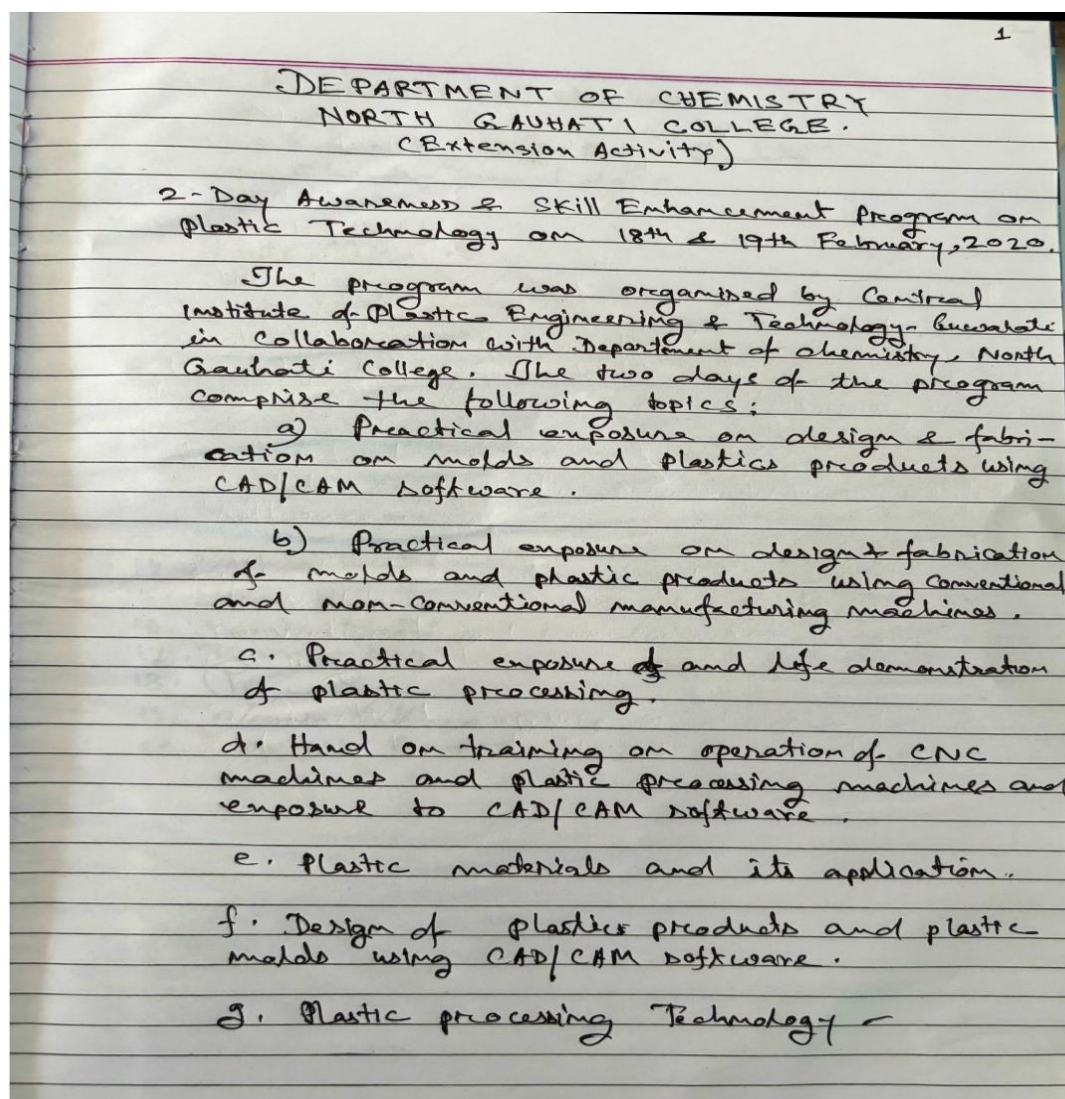 1
DEPARTMENT OF CHEMISTRY
NORTH GAUHATI COLLEGE.
(Extension Activity)
2-Day Awareness & Skill Enhancement Program on
Plastic Technology on 18th & 19th February, 2020.
The program was organised by Central
Institute of Plastic Engineering & Technology- Guwahati
in Collaboration with Department of chemistry, North
Gauhati College. The two days of the program
comprise the following topics:
a) Practical exposure on design & fabri-
cation on molds and plastics products using
CAD/CAM software.
b) Practical exposure on design & fabrication
of molds and plastic products using Conventional
and non-conventional manufacturing machines.
c. Practical exposure and life demonstration
of plastic processing.
d. Hand on training on operation of CNC
machines and plastic processing machines and
exposure to CAD/CAM software.
e. Plastic materials and its application.
f. Design of plastics products and plastic
molds using CAD/CAM software.
g. Plastic processing Technology -